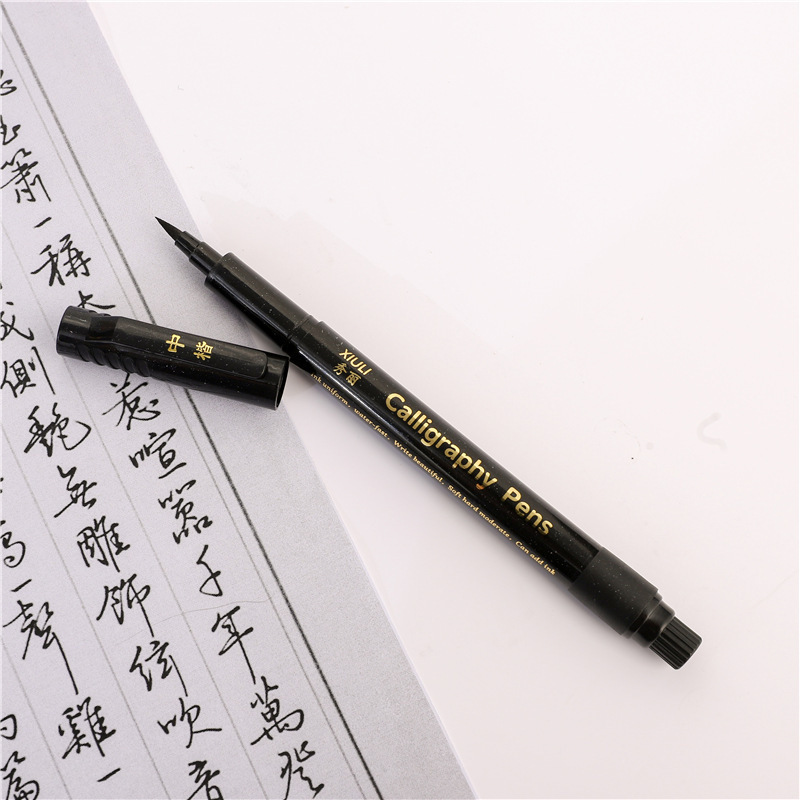 中楷
XIULI
秀丽
Calligraphy Pens
Ink uniform, water-fast. Write beautiful. Soft hard moderate. Can add ink
簫一稱
惹喧噐千年萬登
側艷無雕飾絃吹音
一聲雞一
篇